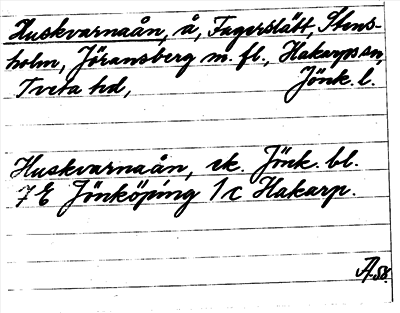 Huskvarnaån, å, Fagerslätt, Stens-
holm, Jöransberg m. fl., Hakarps sn,
Tveta hd, Jönk. l.
Huskvarnaån, ek. Jönk. bl.
7 E Jönköping 1 c Hakarp.